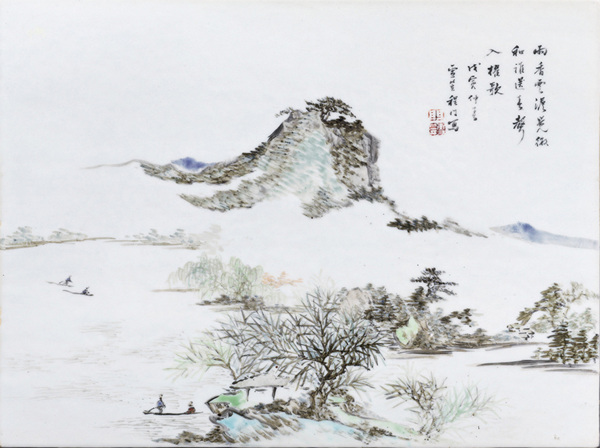 雨香雲淡覺微
和誰送春聲
入櫂歌
戊寅仲春
雪笠程門寫